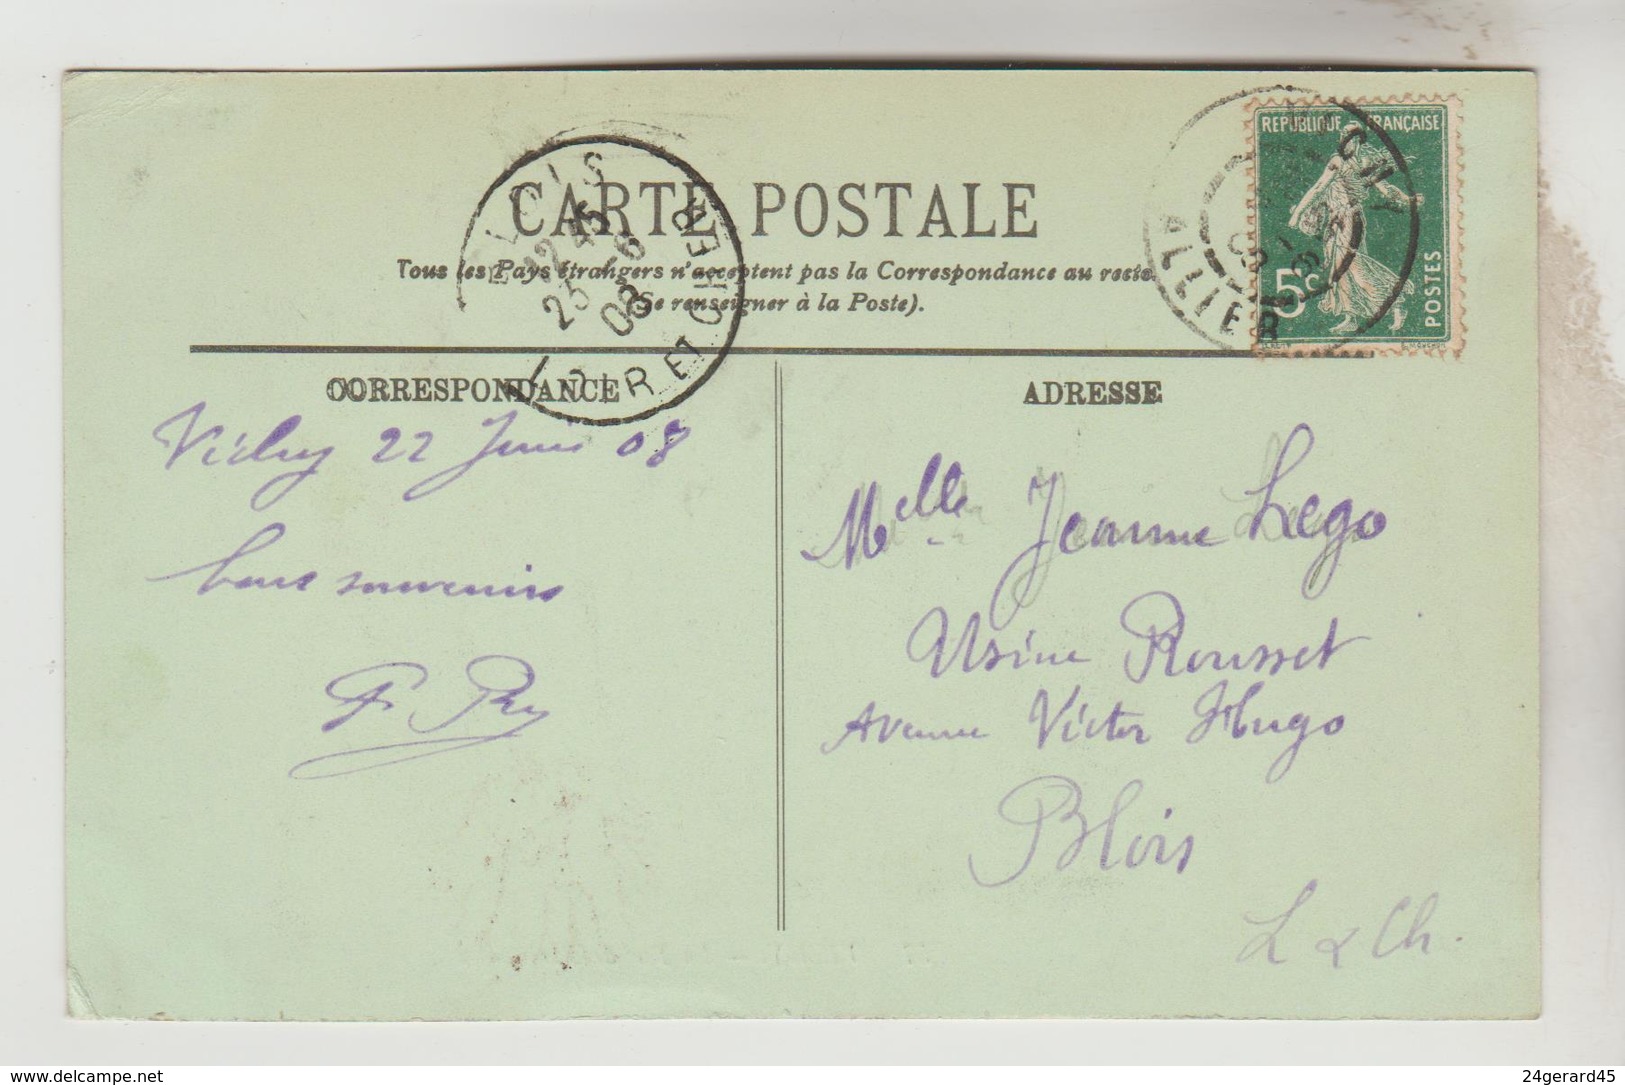 CARTE POSTALE
Tous les Pays étrangers n'acceptent pas la Correspondance au recto
(Se renseigner à la Poste).
BLOIS
12 45
25 - 6
08
LOIR ET CHER
VICHY
ALLIER
REPUBLIQUE FRANÇAISE
5c
POSTES
CORRESPONDANCE
ADRESSE
Vichy 22 Juin 08
bons souvenirs
Melle Jeanne Lego
Usine Rousset
Avenue Victor Hugo
Blois
L & Ch.
www.delcampe.net
24gerard45